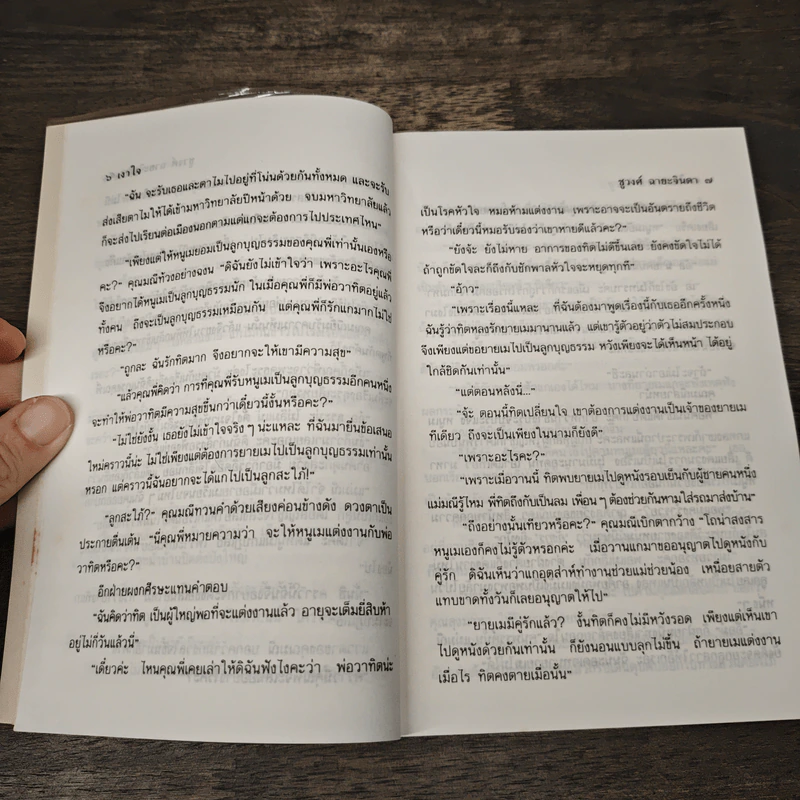 ๖ เงาใจ
"ฉัน จะรับเธอและตาไมไปอยู่ที่โน่นด้วยกันทั้งหมด และจะรับ
ส่งเสียตาไมให้ได้เข้ามหาวิทยาลัยปีหน้าด้วย จบมหาวิทยาลัยแล้ว
ก็จะส่งไปเรียนต่อเมืองนอกตามแต่แกจะต้องการไปประเทศไหน"
"เพียงแต่ให้หนูเมยอมเป็นลูกบุญธรรมของคุณพี่เท่านั้นเองหรือ
คะ?" คุณมณีท้วงอย่างฉงน "ดิฉันยังไม่เข้าใจว่า เพราะอะไรคุณพี่
จึงอยากได้หนูเมเป็นลูกบุญธรรมนัก ในเมื่อคุณพี่ก็มีพ่อวาทิตอยู่แล้ว
ทั้งคน ถึงจะเป็นลูกบุญธรรมเหมือนกัน แต่คุณพี่ก็รักแกมากไม่ใช่
หรือคะ?"
"ถูกละ ฉันรักทิตมาก จึงอยากจะให้เขามีความสุข"
"แล้วคุณพี่คิดว่า การที่คุณพี่รับหนูเมเป็นลูกบุญธรรมอีกคนหนึ่ง
จะทำให้พ่อวาทิตมีความสุขขึ้นกว่าเดี๋ยวนี้งั้นหรือคะ?"
"ไม่ใช่ยังงั้น เธอยังไม่เข้าใจจริงๆ น่ะแหละ ที่ฉันมายื่นข้อเสนอ
ใหม่คราวนี้น่ะ ไม่ใช่เพียงแต่ต้องการยายเมไปเป็นลูกบุญธรรมเท่านั้น
หรอก แต่คราวนี้ฉันอยากจะได้แกไปเป็นลูกสะใภ้!"
"ลูกสะใภ้?" คุณมณีทวนคำด้วยเสียงค่อนข้างดัง ดวงตาเป็น
ประกายตื่นเต้น "นี่คุณพี่หมายความว่า จะให้หนูเมแต่งงานกับพ่อ
วาทิตหรือคะ?"
อีกฝ่ายผงกศีรษะแทนคำตอบ
"ฉันคิดว่าทิต เป็นผู้ใหญ่พอที่จะแต่งงานแล้ว อายุจะเต็มยี่สิบห้า
อยู่ไม่กี่วันแล้วนี่"
"เดี๋ยวค่ะ ไหนคุณพี่เคยเล่าให้ดิฉันฟังไงคะว่า พ่อวาทิตน่ะ
ชูวงศ์ ฉายะจินดา ๗
เป็นโรคหัวใจ หมอห้ามแต่งงาน เพราะอาจจะเป็นอันตรายถึงชีวิต
หรือว่าเดี๋ยวนี้หมอรับรองว่าเขาหายดีแล้วคะ?"
"ยังจ้ะ ยังไม่หาย อาการของทิตไม่ดีขึ้นเลย ยังคงขัดใจไม่ได้
ถ้าถูกขัดใจละก็ถึงกับชักพาลหัวใจจะหยุดทุกที"
"อ้าว"
"เพราะเรื่องนี้แหละ ที่ฉันต้องมาพูดเรื่องนี้กับเธออีกครั้งหนึ่ง
ฉันรู้ว่าทิตหลงรักยายเมมานานแล้ว แต่เขารู้ตัวอยู่ว่าตัวไม่สมประกอบ
จึงเพียงแต่ขอยายเมไปเป็นลูกบุญธรรม หวังเพียงจะได้เห็นหน้า ได้อยู่
ใกล้ชิดกันเท่านั้น"
"แต่ตอนหลังนี่..."
"จ้ะ ตอนนี้ทิตเปลี่ยนใจ เขาต้องการแต่งงานเป็นเจ้าของยายเม
ทีเดียว ถึงจะเป็นเพียงในนามก็ยังดี"
"เพราะอะไรคะ?"
"เพราะเมื่อวานนี้ ทิตพบยายเมไปดูหนังรอบเย็นกับผู้ชายคนหนึ่ง
แม่มณีรู้ไหม พี่ทิตถึงกับเป็นลม เพื่อนๆ ต้องช่วยกันหามใส่รถมาส่งบ้าน"
"ถึงอย่างนั้นเทียวหรือคะ?" คุณมณีเบิกตากว้าง "โถน่าสงสาร
หนูเมเองก็คงไม่รู้ตัวหรอกค่ะ เมื่อวานแกมาขออนุญาตไปดูหนังกับ
คู่รัก ดิฉันเห็นว่าแกอุตส่าห์ทำงานช่วยแม่ช่วยน้อง เหนื่อยสายตัว
แทบขาดทั้งวันก็เลยอนุญาตให้ไป"
"ยายเมมีคู่รักแล้ว? งั้นทิตก็คงไม่มีหวังรอด เพียงแต่เห็นเขา
ไปดูหนังด้วยกันเท่านั้น ก็ยังนอนแบบลุกไม่ขึ้น ถ้ายายเมแต่งงาน
เมื่อไร ทิตคงตายเมื่อนั้น"